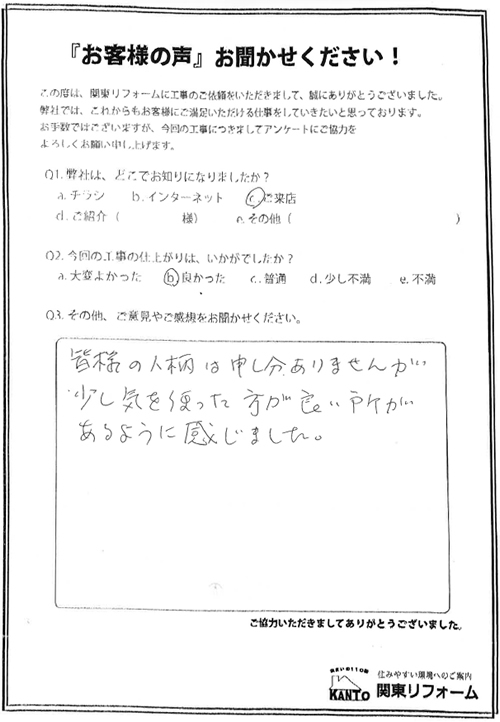 『お客様の声』お聞かせください！
この度は、関東リフォームに工事のご依頼をいただきまして、誠にありがとうございました。
弊社では、これからもお客様にご満足いただける仕事をしていきたいと思っております。
お手数ではございますが、今回の工事につきましてアンケートにご協力を
よろしくお願い申し上げます。
Q1. 弊社は、どこでお知りになりましたか？
a. チラシ b. インターネット c. ご来店
d. ご紹介（ 様） e. その他（ ）
Q2. 今回の工事の仕上がりは、いかがでしたか？
a. 大変よかった b. 良かった c. 普通 d. 少し不満 e. 不満
Q3. その他、ご意見やご感想をお聞かせください。
皆様の人柄は申し分ありませんが
少し気を使った方が良い所が
あるように感じました。
ご協力いただきましてありがとうございました。
住まいの110番
住みやすい環境へのご案内
KANTO 関東リフォーム